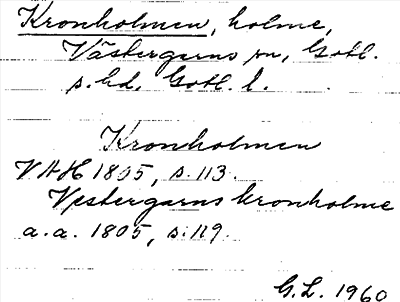 Kronholmen, holme,
Västergarns sn, Gotl.
s. hd, Gotl. l.
Kronholmen
VAH 1805, s. 113.
Vestergarns kronholme
a. a. 1805, s. 119.
G. L. 1960